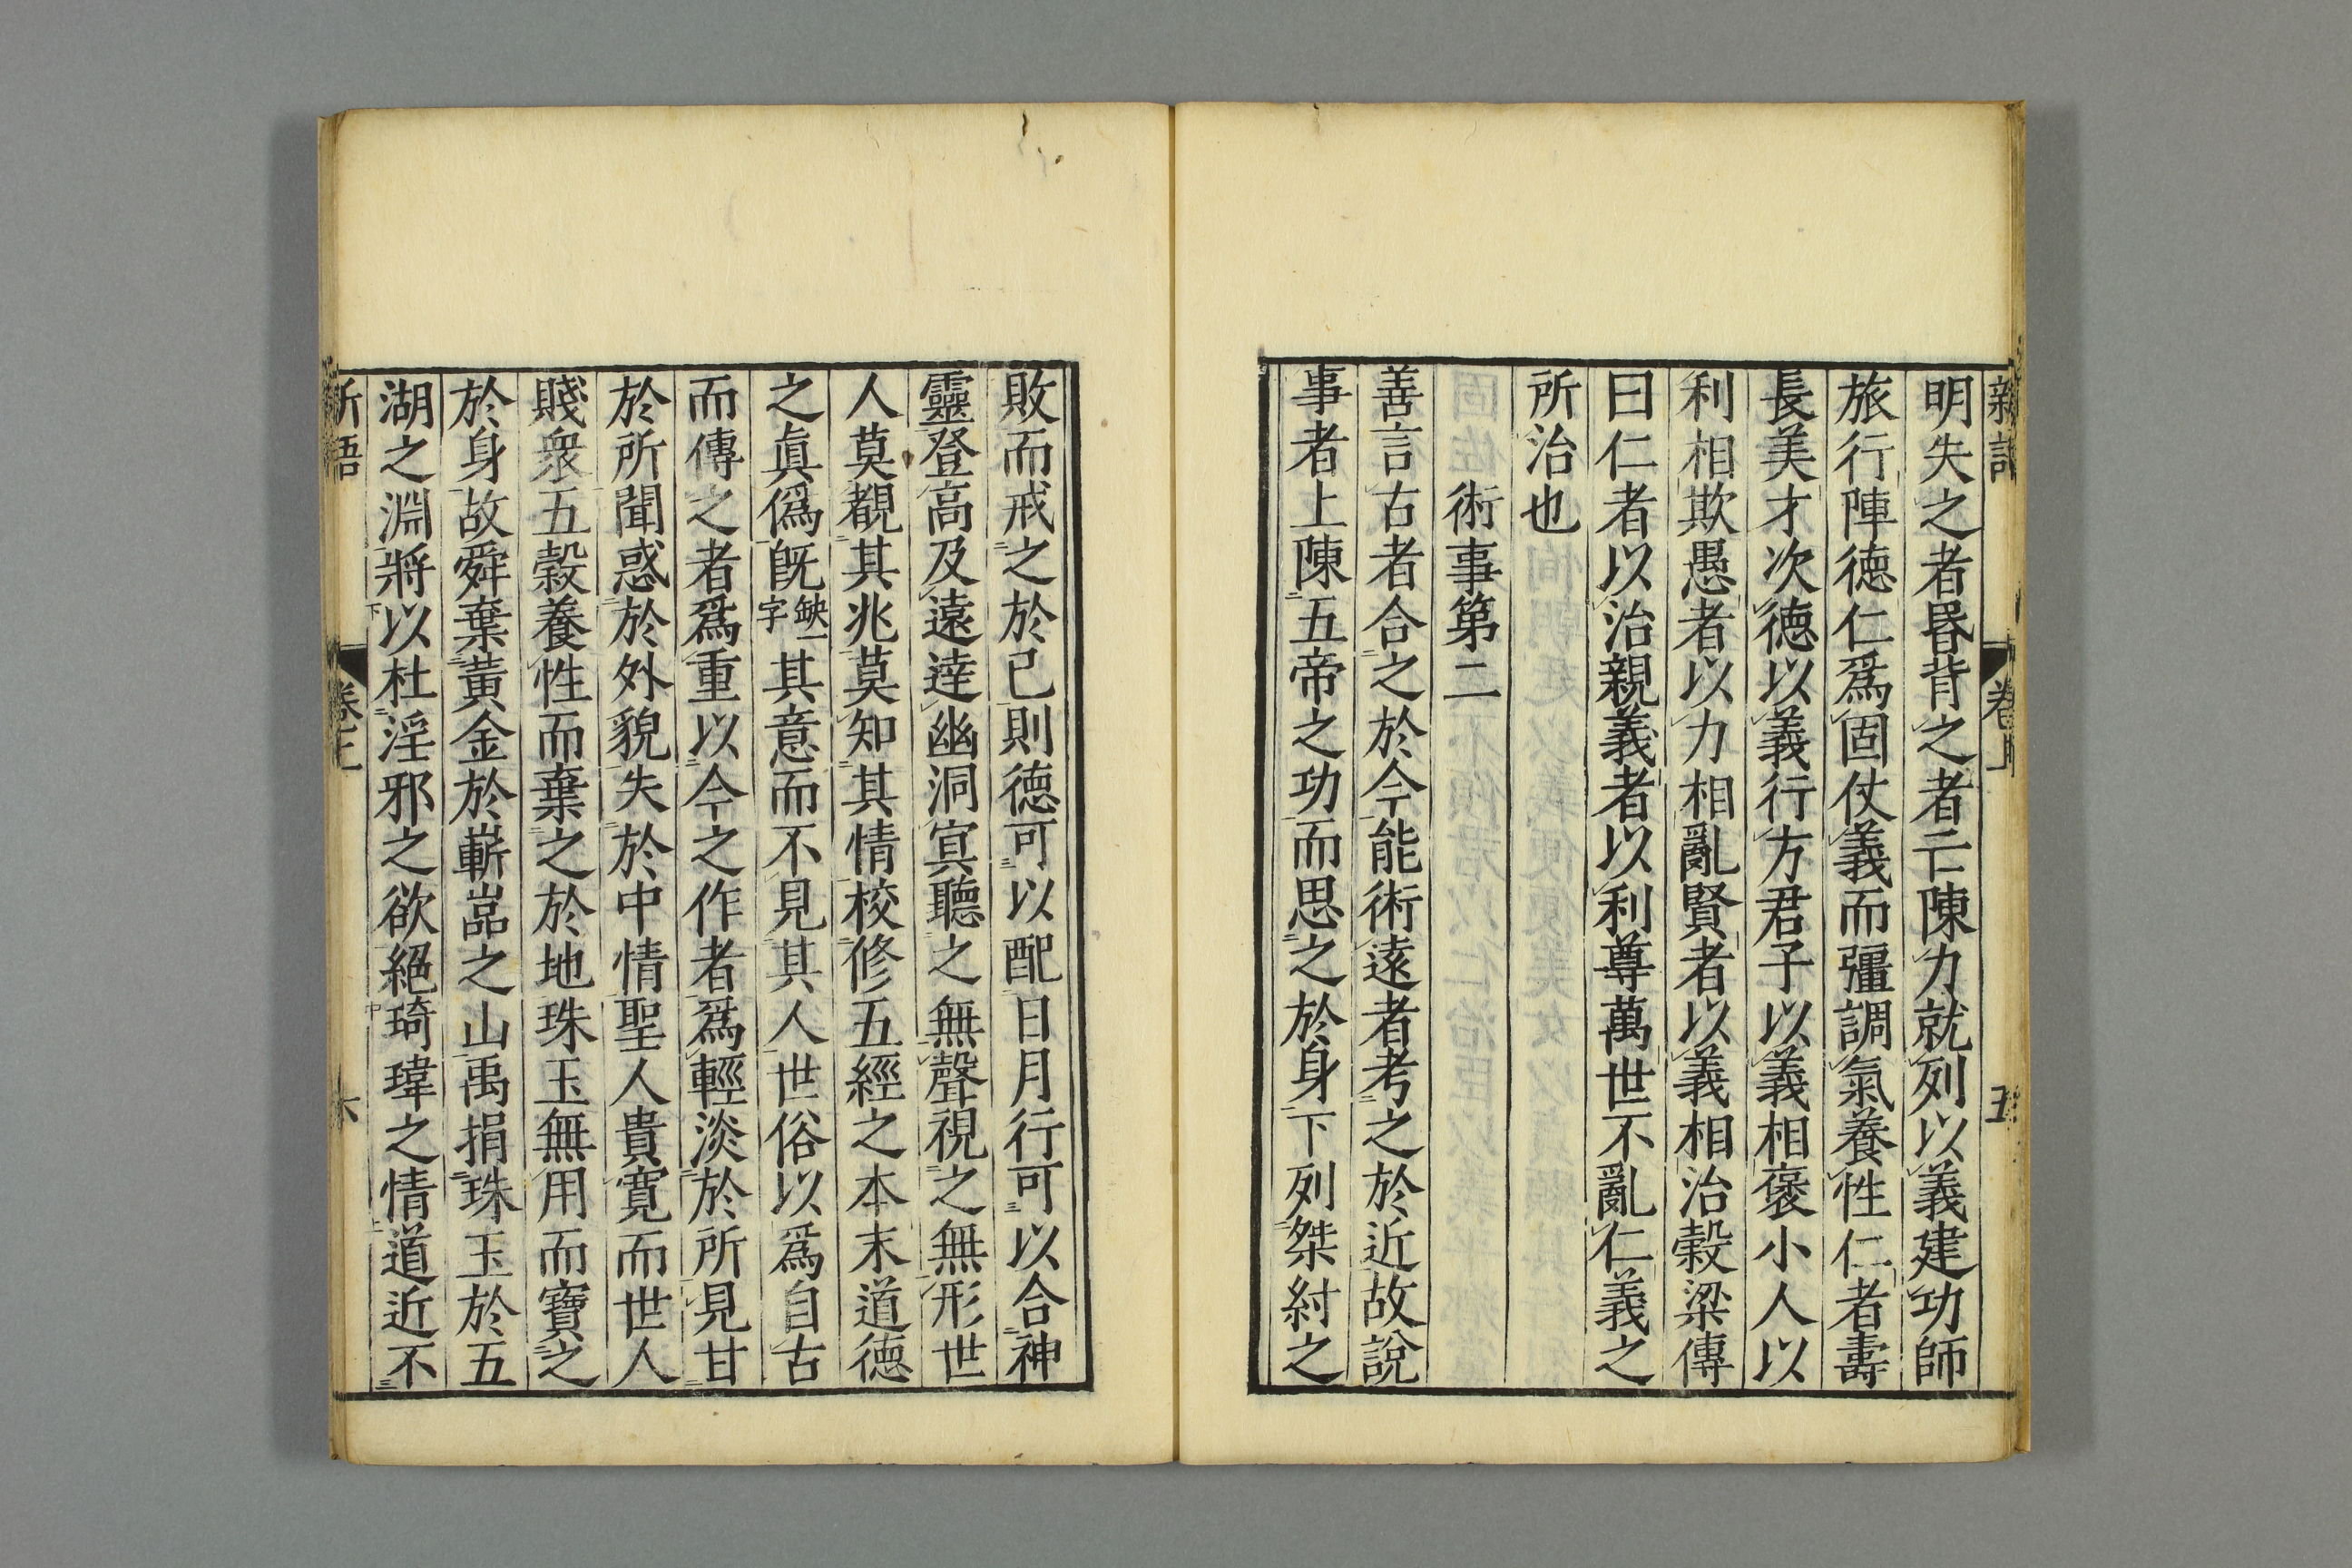 新語
卷上
五
明失之者昬背之者亡陳力就列以義建功師
旅行陣徳仁爲固仗義而彊調氣養性仁者壽
長美才次徳以義行方君子以義相褒小人以
利相欺愚者以力相亂賢者以義相治穀梁傳
曰仁者以治親義者以利尊萬世不亂仁義之
所治也
術事第二
善言古者合之於今能術遠者考之於近故說
事者上陳五帝之功而思之於身下列桀紂之
敗而戒之於己則徳可以配日月行可以合神
靈登高及遠達幽洞冥聽之無聲視之無形世
人莫覩其兆莫知其情校修五經之本末道徳
之眞僞旣缺一字其意而不見其人世俗以爲自古
而傳之者爲重以今之作者爲輕淡於所見甘
於所聞惑於外貌失於中情聖人貴寛而世人
賤衆五穀養性而棄之於地珠玉無用而寶之
於身故舜棄黃金於嶄嵓之山禹捐珠玉於五
湖之淵將以杜淫邪之欲絕琦瑋之情道近不
新語
卷上
六